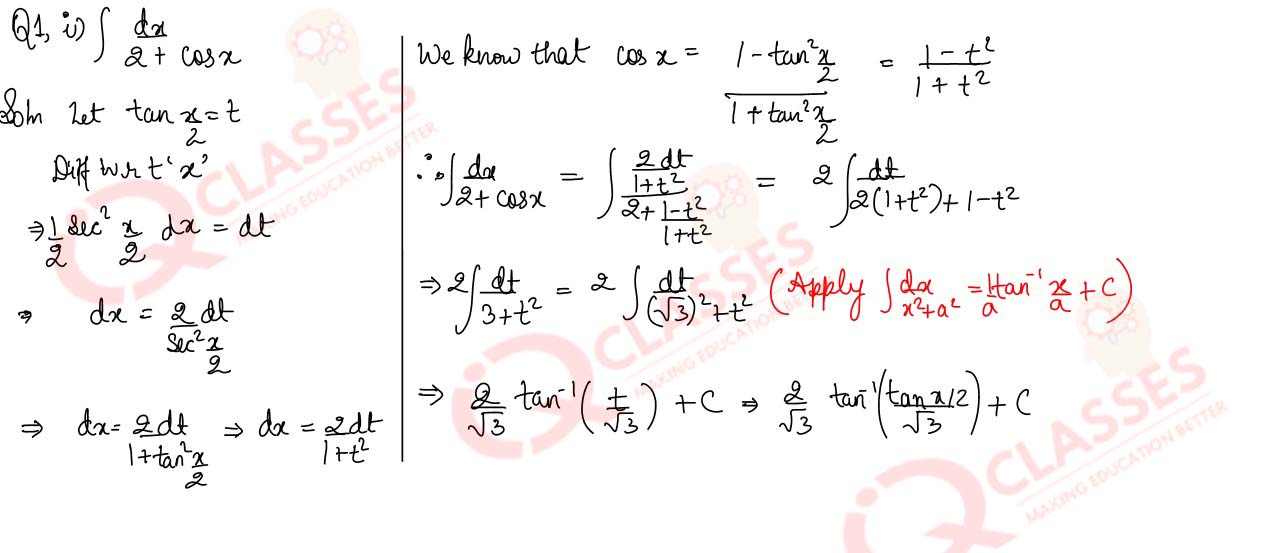 Q1, i) ∫ dx/(2 + cos x)
Soln Let tan x/2 = t
Diff w r t 'x'
⇒ 1/2 sec² x/2 dx = dt
⇒ dx = 2 dt/(sec² x/2)
⇒ dx = 2dt/(1+tan² x/2) ⇒ dx = 2dt/(1+t²)
We know that cos x = (1 - tan² x/2)/(1 + tan² x/2) = (1 - t²)/(1 + t²)
∴ ∫ dx/(2 + cos x) = ∫ (2 dt/(1+t²))/(2 + (1-t²)/(1+t²)) = 2 ∫ dt/(2(1+t²) + 1 - t²)
⇒ 2 ∫ dt/(3 + t²) = 2 ∫ dt/((√3)² + t²) (Apply ∫ dx/(x²+a²) = 1/a tan⁻¹ x/a + C)
⇒ 2/√3 tan⁻¹ (t/√3) + C ⇒ 2/√3 tan⁻¹ (tan x/2/√3) + C
IQ CLASSES
MAKING EDUCATION BETTER
IQ CLASSES
MAKING EDUCATION BETTER
IQ CLASSES
MAKING EDUCATION BETTER